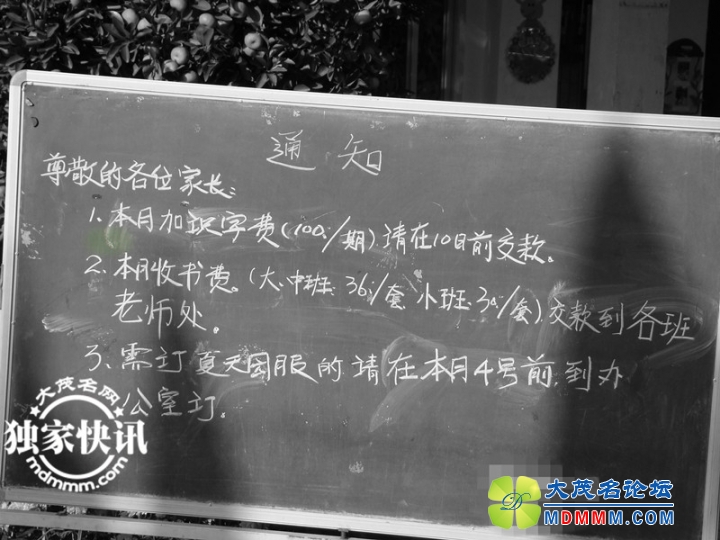 通知
尊敬的各位家长:
1. 本月加识字费(100./期)请在10日前交款。
2. 本月收书费。(大.中班:36./套 小班:30./套)交款到各班
老师处。
3. 需订夏天园服的请在本月4号前.到办
公室订.
大茂名网
独家快讯
mdmmm.com
大茂名论坛
MDMMM.COM